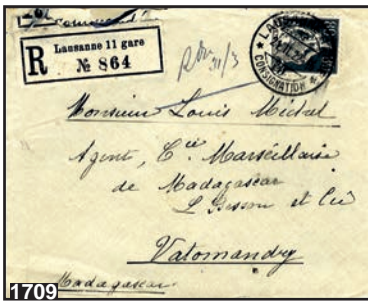 R
Lausanne 11 gare
№ 864
LAUSANNE
CONSIGNATION
Monsieur Louis Michel
Agent, Cie Marseillaise
de Madagascar
L Besson et Cie
Vatomandry
Madagascar
1709